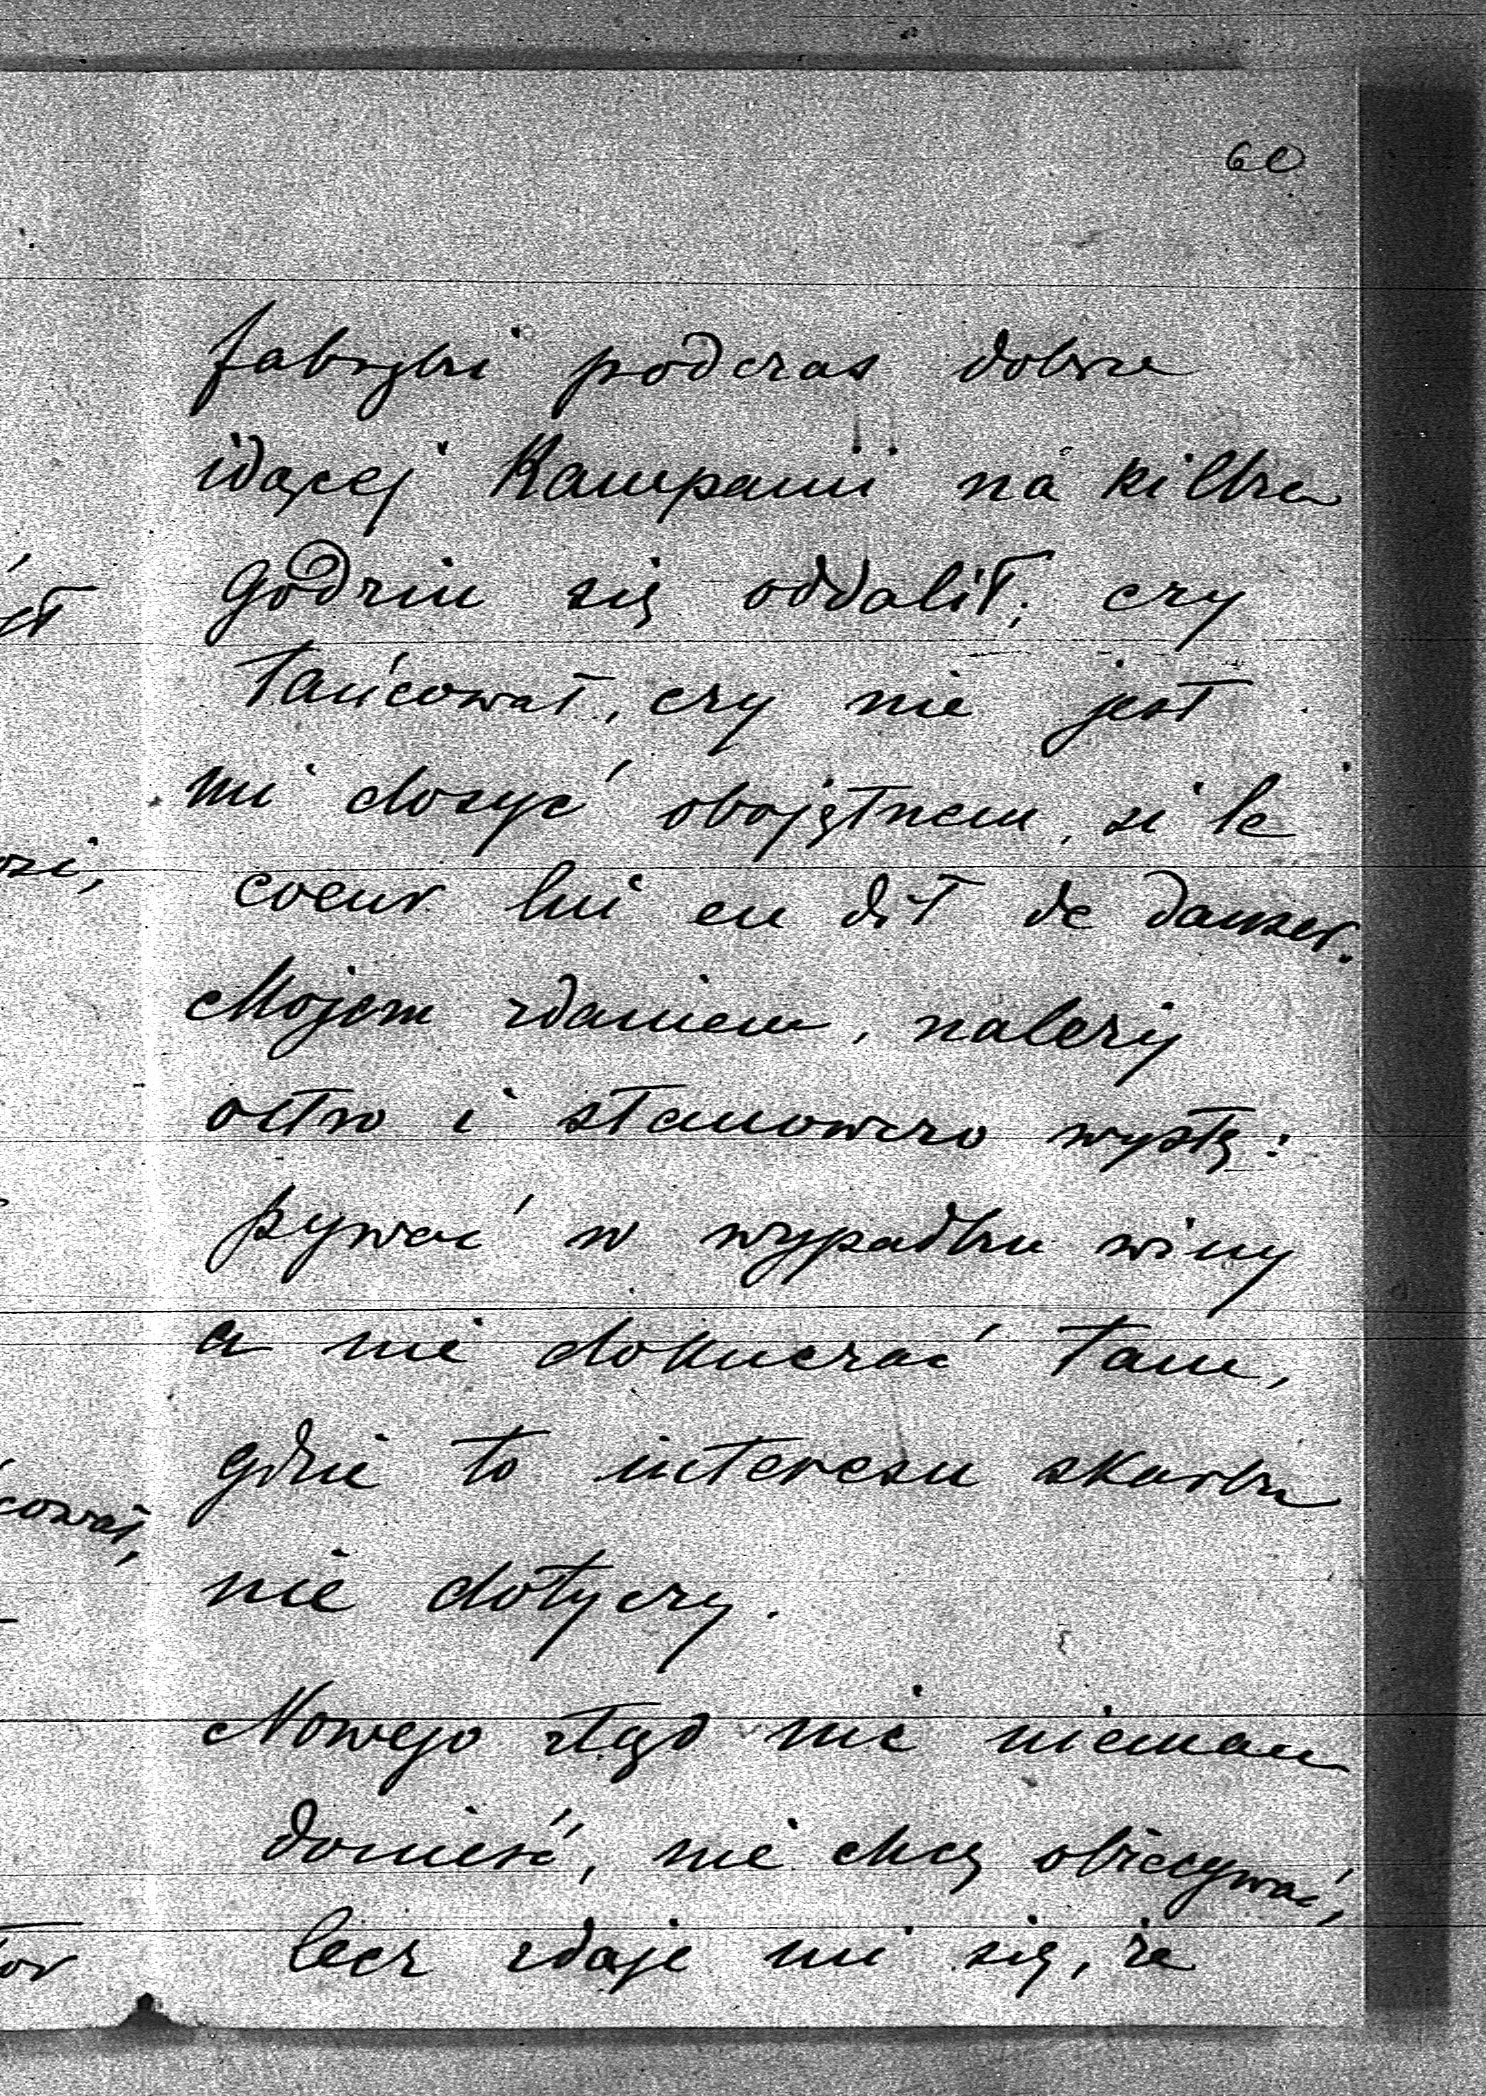 60
fabryki podczas dobrze
idącej Kampanii na kilka
godzin się oddalił; czy
tańcował, czy nie jest
mi dosyć obojętnem, si le
coeur lui en dit de danser.
Mojem zdaniem, należy
ostro i stanowczo wystę:
pywać w wypadku winy
a nie dokuczać tam,
gdzie to interesu skarbu
nie dotyczy.
Nowego ztąd nic niemam
donieść, nie chcę obiecywać,
lecz zdaje mi się, że